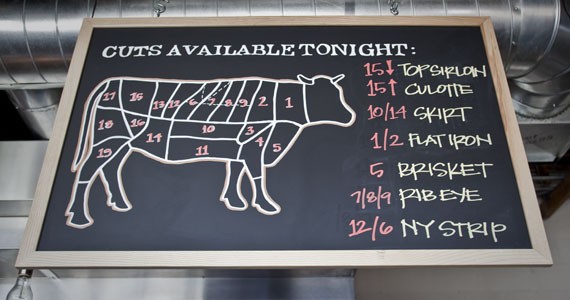 CUTS AVAILABLE TONIGHT:
15↓ TOP SIRLOIN
15↑ CULOTTE
10/14 SKIRT
1/2 FLAT IRON
5 BRISKET
7/8/9 RIB EYE
12/6 NY STRIP
17 15 13 12 6 7 8 9 2 1
18 16 14 10 3
19 11 4 5